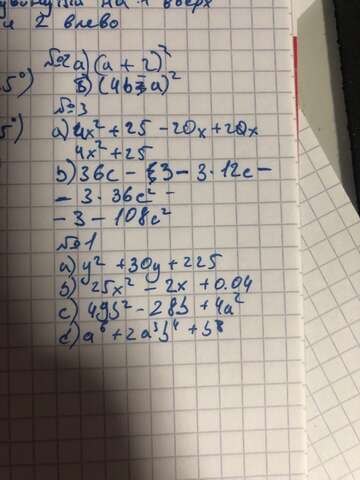 на 1 вверх
и 2 влево
№2 a) (a + 2)²
5°)
б) (4b-3a)²
№3
5°)
a) 4x² + 25 - 20x + 20x
4x² + 25
b) 36c - 3 - 3·12c -
- 3·36c² -
- 3 - 108c²
№1
a) y² + 30y + 225
b) 25x² - 2x + 0.04
c) 49b² - 28b + 4a²
d) a⁶ + 2a³b⁴ + b⁸